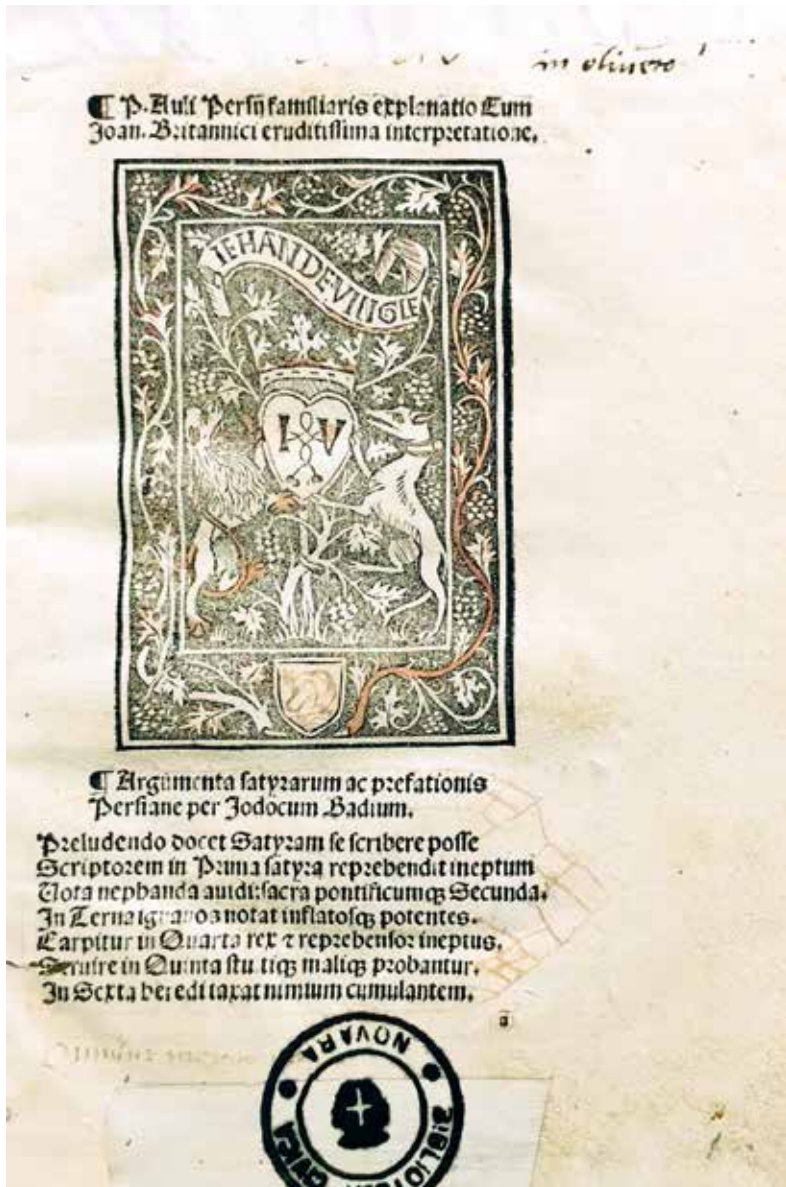 in olivero
¶ P. Auli Persij familiaris explanatio Cum
Joan. Britannici eruditissima interpretatione.
IEHAN DE VINGLE
I V
¶ Argumenta satyrarum ac prefationis
Persiane per Jodocum Badium.
Preludendo docet Satyram se scribere posse
Scriptorem in Prima satyra reprehendit ineptum
Vota nephanda auidi: sacra pontificumqȝ Secunda.
In Terna ignauos notat inflatosqȝ potentes.
Carpitur in Quarta rex ⁊ reprehensor ineptus.
Seruire in Quinta stultiqȝ maliqȝ probantur.
In Sexta heredi taxat nimium cumulantem.
a
NOVARA
BIBLIOTECA CIVICA